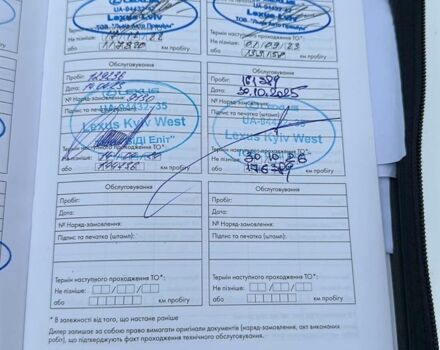 Lexus Lviv
UA-04432-45
Lexus Lviv
Не пізніше:
або
км пробігу
Термін наступного проходження ТО*:
Не пізніше: 01/09/23
або
км пробігу
Обслуговування
Пробіг:
Дата:
№ Наряд-замовлення:
Підпис та печатка (штамп):
LEXUS
UA-04432-35
Lexus Kyiv West
"ВІДІ Еліт"
Не пізніше:
або
км пробігу
Обслуговування
Пробіг: 161389
Дата: 30.10.2025
№ Наряд-замовлення:
Підпис та печатка (штамп):
UA-04432-35
Lexus Kyiv West
Термін наступного проходження ТО*:
Не пізніше: 30 10 26
або 176389 км пробігу
Обслуговування
Пробіг:
Дата:
№ Наряд-замовлення:
Підпис та печатка (штамп):
Термін наступного проходження ТО*:
Не пізніше:
або
км пробігу
Обслуговування
Пробіг:
Дата:
№ Наряд-замовлення:
Підпис та печатка (штамп):
Термін наступного проходження ТО*:
Не пізніше:
або
км пробігу
* В залежності від того, що настане раніше
Дилер залишає за собою право вимагати оригінали документів (наряд-замовлення, акт виконаних
робіт), що підтверджують факт проходження технічного обслуговування.